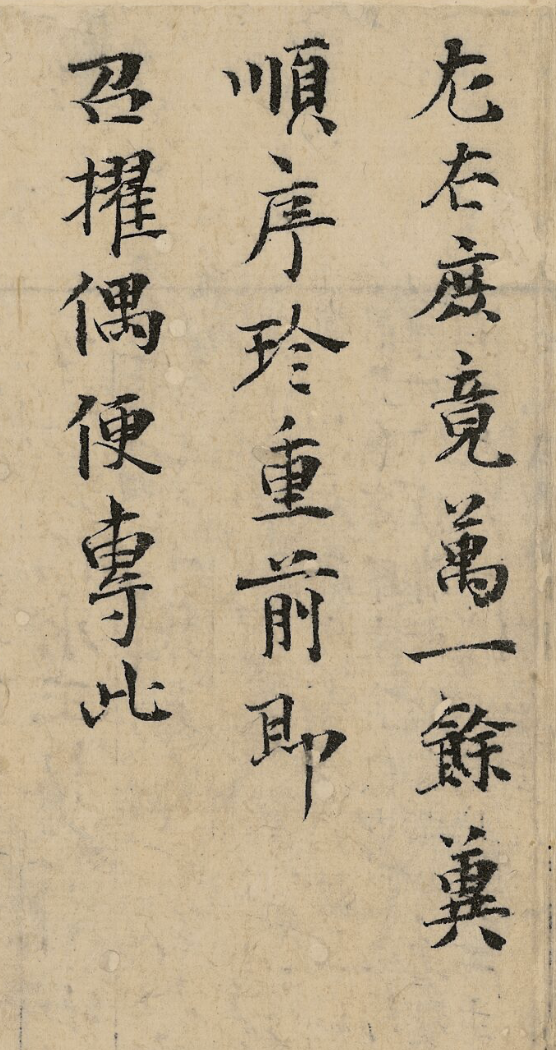 左右庶竟萬一餘冀
順序珍重前即
召擢偶便専此